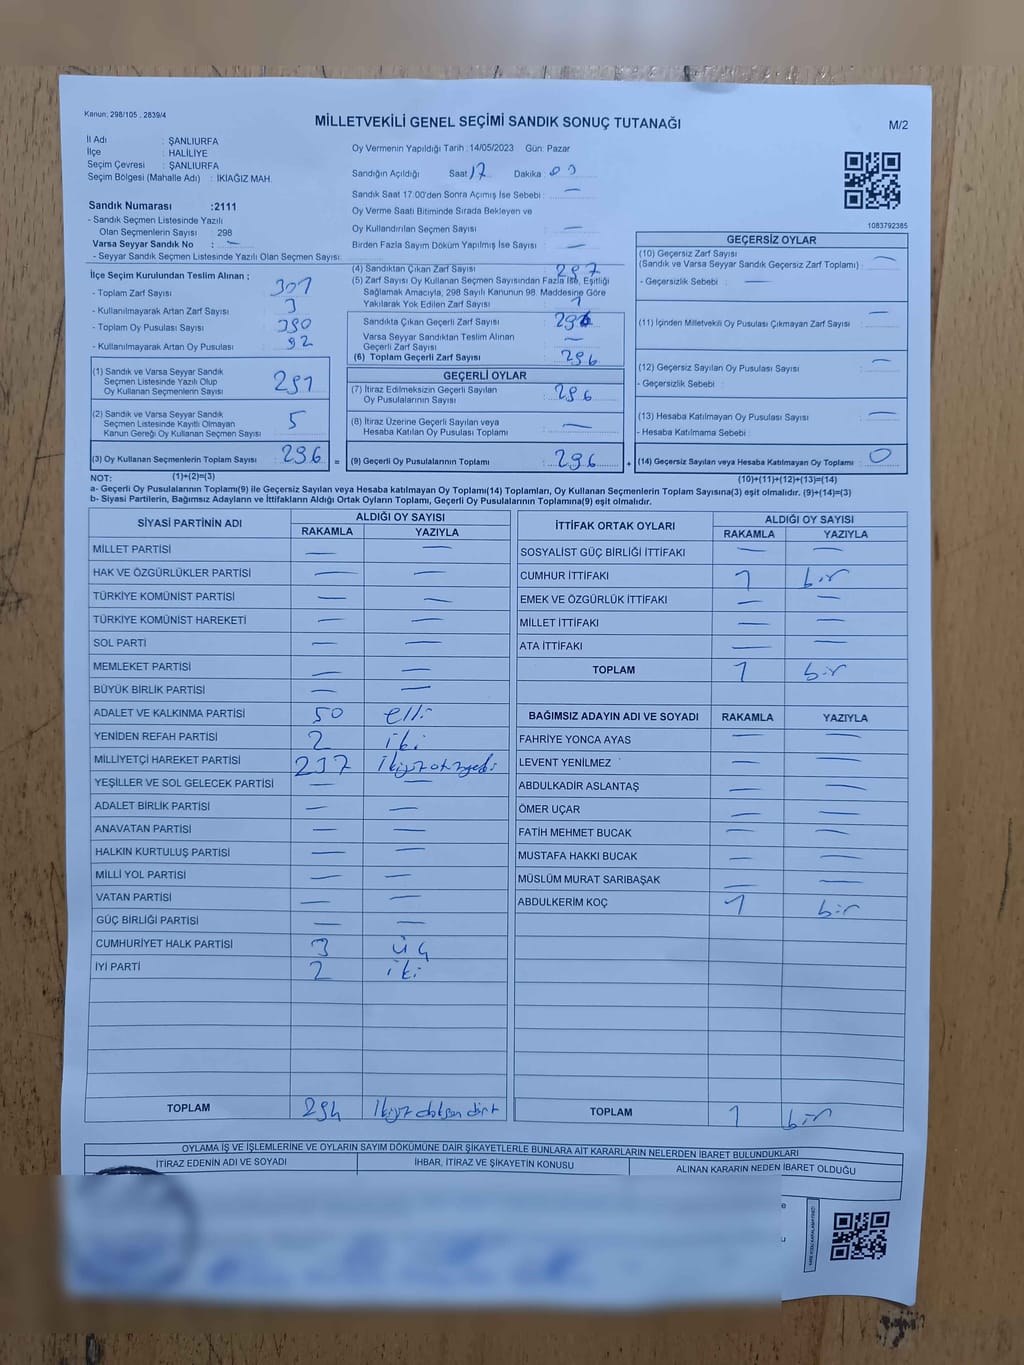 Kanun: 298/105 , 2839/4
MİLLETVEKİLİ GENEL SEÇİMİ SANDIK SONUÇ TUTANAĞI
M/2
İl Adı : ŞANLIURFA
İlçe : HALİLİYE
Seçim Çevresi : ŞANLIURFA
Seçim Bölgesi (Mahalle Adı) : İKİAĞIZ MAH.
Oy Vermenin Yapıldığı Tarih :14/05/2023 Gün: Pazar
Sandığın Açıldığı Saat 17 Dakika :
Sandık Saat 17:00'den Sonra Açımış İse Sebebi : —
Oy Verme Saati Bitiminde Sırada Bekleyen ve
Oy Kullandırılan Seçmen Sayısı : —
Birden Fazla Sayım Döküm Yapılmış İse Sayısı : —
1083792385
Sandık Numarası :2111
- Sandık Seçmen Listesinde Yazılı
Olan Seçmenlerin Sayısı : 298
Varsa Seyyar Sandık No : —
- Seyyar Sandık Seçmen Listesinde Yazılı Olan Seçmen Sayısı:
İlçe Seçim Kurulundan Teslim Alınan ;
- Toplam Zarf Sayısı : 301
- Kullanılmayarak Artan Zarf Sayısı : 3
- Toplam Oy Pusulası Sayısı : 390
- Kullanılmayarak Artan Oy Pusulası : 92
(1) Sandık ve Varsa Seyyar Sandık
Seçmen Listesinde Yazılı Olup
Oy Kullanan Seçmenlerin Sayısı 291
(2) Sandık ve Varsa Seyyar Sandık
Seçmen Listesinde Kayıtlı Olmayan
Kanun Gereği Oy Kullanan Seçmen Sayısı 5
(3) Oy Kullanan Seçmenlerin Toplam Sayısı 296 =
(4) Sandıktan Çıkan Zarf Sayısı : 297
(5) Zarf Sayısı Oy Kullanan Seçmen Sayısından Fazla İse, Eşitliği
Sağlamak Amacıyla, 298 Sayılı Kanunun 98. Maddesine Göre
Yakılarak Yok Edilen Zarf Sayısı : 1
Sandıkta Çıkan Geçerli Zarf Sayısı : 296
Varsa Seyyar Sandıktan Teslim Alınan
Geçerli Zarf Sayısı : —
(6) Toplam Geçerli Zarf Sayısı : 296
GEÇERLİ OYLAR
(7) İtiraz Edilmeksizin Geçerli Sayılan
Oy Pusulalarının Sayısı : 296
(8) İtiraz Üzerine Geçerli Sayılan veya
Hesaba Katılan Oy Pusulası Toplamı : —
(9) Geçerli Oy Pusulalarının Toplamı : 296 +
GEÇERSİZ OYLAR
(10) Geçersiz Zarf Sayısı
(Sandık ve Varsa Seyyar Sandık Geçersiz Zarf Toplamı) : —
- Geçersizlik Sebebi : —
(11) İçinden Milletvekili Oy Pusulası Çıkmayan Zarf Sayısı : —
(12) Geçersiz Sayılan Oy Pusulası Sayısı : —
- Geçersizlik Sebebi :
(13) Hesaba Katılmayan Oy Pusulası Sayısı : —
- Hesaba Katılmama Sebebi :
(14) Geçersiz Sayılan veya Hesaba Katılmayan Oy Toplamı : 0
NOT: (1)+(2)=(3)
(10)+(11)+(12)+(13)=(14)
a- Geçerli Oy Pusulalarının Toplamı(9) ile Geçersiz Sayılan veya Hesaba katılmayan Oy Toplamı(14) Toplamları, Oy Kullanan Seçmenlerin Toplam Sayısına(3) eşit olmalıdır. (9)+(14)=(3)
b- Siyasi Partilerin, Bağımsız Adayların ve İttifakların Aldığı Ortak Oyların Toplamı, Geçerli Oy Pusulalarının Toplamına(9) eşit olmalıdır.
SİYASİ PARTİNİN ADI ALDIĞI OY SAYISI
RAKAMLA YAZIYLA
MİLLET PARTİSİ — —
HAK VE ÖZGÜRLÜKLER PARTİSİ — —
TÜRKİYE KOMÜNİST PARTİSİ — —
TÜRKİYE KOMÜNİST HAREKETİ — —
SOL PARTİ — —
MEMLEKET PARTİSİ — —
BÜYÜK BİRLİK PARTİSİ — —
ADALET VE KALKINMA PARTİSİ 50 elli
YENİDEN REFAH PARTİSİ 2 iki
MİLLİYETÇİ HAREKET PARTİSİ 237
YEŞİLLER VE SOL GELECEK PARTİSİ — —
ADALET BİRLİK PARTİSİ — —
ANAVATAN PARTİSİ — —
HALKIN KURTULUŞ PARTİSİ — —
MİLLİ YOL PARTİSİ — —
VATAN PARTİSİ — —
GÜÇ BİRLİĞİ PARTİSİ — —
CUMHURİYET HALK PARTİSİ 3 üç
İYİ PARTİ 2 iki
TOPLAM 294 İkiyüz doksan dört
İTTİFAK ORTAK OYLARI ALDIĞI OY SAYISI
RAKAMLA YAZIYLA
SOSYALİST GÜÇ BİRLİĞİ İTTİFAKI — —
CUMHUR İTTİFAKI 1 bir
EMEK VE ÖZGÜRLÜK İTTİFAKI — —
MİLLET İTTİFAKI — —
ATA İTTİFAKI — —
TOPLAM 1 bir
BAĞIMSIZ ADAYIN ADI VE SOYADI RAKAMLA YAZIYLA
FAHRİYE YONCA AYAS — —
LEVENT YENİLMEZ — —
ABDULKADİR ASLANTAŞ — —
ÖMER UÇAR — —
FATİH MEHMET BUCAK — —
MUSTAFA HAKKI BUCAK — —
MÜSLÜM MURAT SARIBAŞAK — —
ABDULKERİM KOÇ 1 bir
TOPLAM 1 bir
OYLAMA İŞ VE İŞLEMLERİNE VE OYLARIN SAYIM DÖKÜMÜNE DAİR ŞİKAYETLERLE BUNLARA AİT KARARLARIN NELERDEN İBARET BULUNDUKLARI
İTİRAZ EDENİN ADI VE SOYADI İHBAR, İTİRAZ VE ŞİKAYETİN KONUSU ALINAN KARARIN NEDEN İBARET OLDUĞU